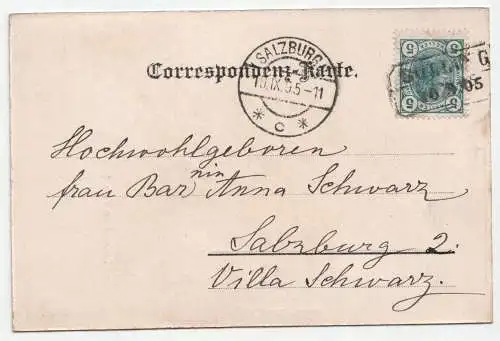 Correspondenz-Karte.
SALZBURG
10.IX.5.5-11
* C *
5 5
5 5
05
Hochwohlgeboren
frau Baronin Anna Schwarz
Salzburg 2.
Villa Schwarz.